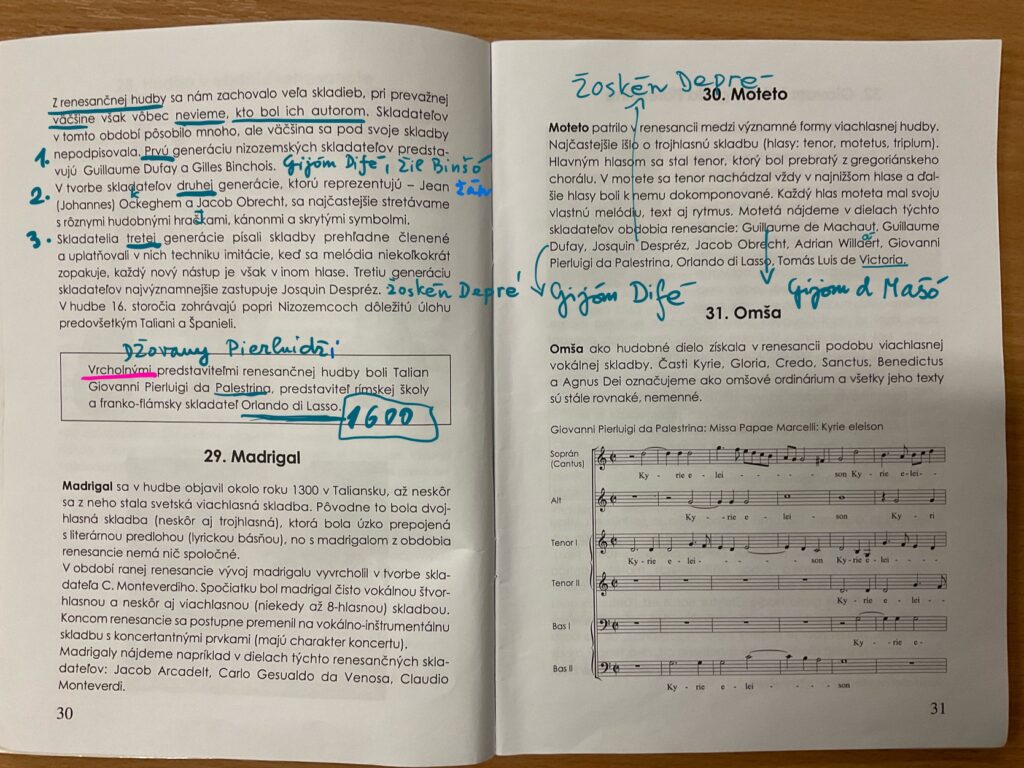 Z renesančnej hudby sa nám zachovalo veľa skladieb, pri prevažnej
väčšine však vôbec nevieme, kto bol ich autorom. Skladateľov
v tomto období pôsobilo mnoho, ale väčšina sa pod svoje skladby
1. nepodpisovala. Prvú generáciu nizozemských skladateľov predsta-
vujú Guillaume Dufay a Gilles Binchois. Gijóm Difé, Žil Binšó
2. V tvorbe skladateľov druhej generácie, ktorú reprezentujú – Jean žán
(Johannes) Ockeghem a Jacob Obrecht, sa najčastejšie stretávame
s rôznymi hudobnými hračkami, kánonmi a skrytými symbolmi.
3. Skladatelia tretej generácie písali skladby prehľadne členené
a uplatňovali v nich techniku imitácie, keď sa melódia niekoľkokrát
zopakuje, každý nový nástup je však v inom hlase. Tretiu generáciu
skladateľov najvýznamnejšie zastupuje Josquin Despréz. Žoskén Depré
V hudbe 16. storočia zohrávajú popri Nizozemcoch dôležitú úlohu
predovšetkým Taliani a Španieli.
Džovany Pierluidži
Vrcholnými predstaviteľmi renesančnej hudby boli Talian
Giovanni Pierluigi da Palestrina, predstaviteľ rímskej školy
a franko-flámsky skladateľ Orlando di Lasso.
1600
29. Madrigal
Madrigal sa v hudbe objavil okolo roku 1300 v Taliansku, až neskôr
sa z neho stala svetská viachlasná skladba. Pôvodne to bola dvoj-
hlasná skladba (neskôr aj trojhlasná), ktorá bola úzko prepojená
s literárnou predlohou (lyrickou básňou), no s madrigalom z obdobia
renesancie nemá nič spoločné.
V období ranej renesancie vývoj madrigalu vyvrcholil v tvorbe skla-
dateľa C. Monteverdiho. Spočiatku bol madrigal čisto vokálnou štvor-
hlasnou a neskôr aj viachlasnou (niekedy až 8-hlasnou) skladbou.
Koncom renesancie sa postupne premenil na vokálno-inštrumentálnu
skladbu s koncertantnými prvkami (majú charakter koncertu).
Madrigaly nájdeme napríklad v dielach týchto renesančných skla-
dateľov: Jacob Arcadelt, Carlo Gesualdo da Venosa, Claudio
Monteverdi.
30
Žoskén Depré
30. Moteto
Moteto patrilo v renesancii medzi významné formy viachlasnej hudby.
Najčastejšie išlo o trojhlasnú skladbu (hlasy: tenor, motetus, triplum).
Hlavným hlasom sa stal tenor, ktorý bol prebratý z gregoriánskeho
chorálu. V motete sa tenor nachádzal vždy v najnižšom hlase a ďal-
šie hlasy boli k nemu dokomponované. Každý hlas moteta mal svoju
vlastnú melódiu, text aj rytmus. Motetá nájdeme v dielach týchto
skladateľov obdobia renesancie: Guillaume de Machaut, Guillaume
Dufay, Josquin Despréz, Jacob Obrecht, Adrian Willaert, Giovanni
Pierluigi da Palestrina, Orlando di Lasso, Tomás Luis de Victoria.
Gijóm Difé Gijóm d Mašó
31. Omša
Omša ako hudobné dielo získala v renesancii podobu viachlasnej
vokálnej skladby. Časti Kyrie, Gloria, Credo, Sanctus, Benedictus
a Agnus Dei označujeme ako omšové ordinárium a všetky jeho texty
sú stále rovnaké, nemenné.
Giovanni Pierluigi da Palestrina: Missa Papae Marcelli: Kyrie eleison
Soprán
(Cantus)
Ky - rie e - lei - son Ky - rie e-lei-
Alt
Ky - rie e - lei - son Ky - ri
Tenor I
Ky - rie e - lei - son Ky - rie e - lei -
Tenor II
Ky - rie e - lei -
Bas I
Ky - rie e-
Bas II
Ky - rie e - lei - son
31